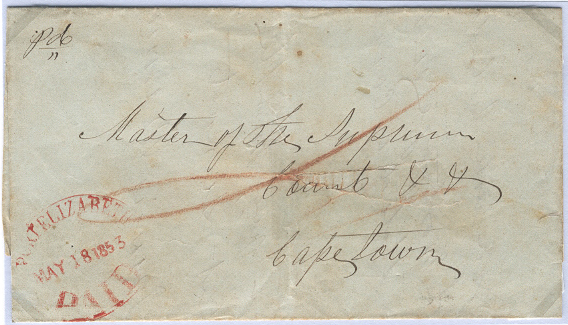 Pd
Master of the Supreme
Court & &
Cape Town
PORT ELIZABETH
MAY 18 1853
PAID